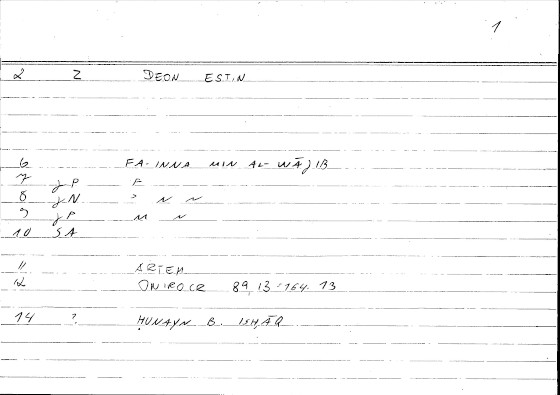 1
2 2 DEON ESTIN
6 FA-INNA MIN AL-WĀJIB
7 gP F
8 gN > N ~
9 gP M ~
10 SA
11 ARTEM
12 ONIROCR 89,13-164.13
14 ? ḤUNAYN B. ISḤĀQ